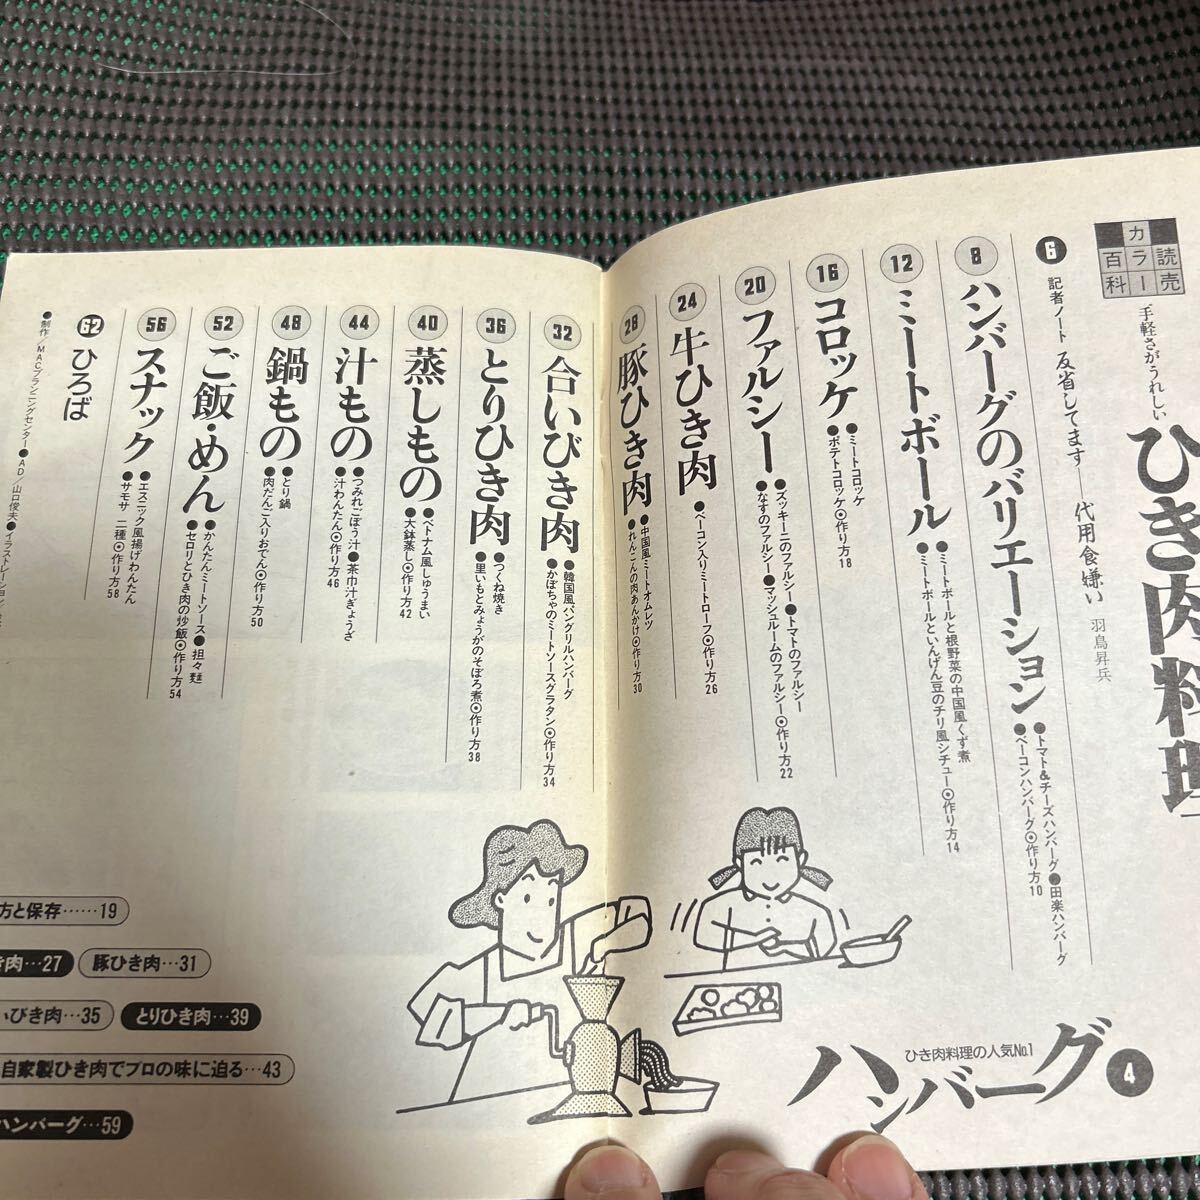 読売
カラー
百科
手軽さがうれしい
ひき肉料理
6
記者ノート 反省してます——代用食嫌い 羽鳥昇兵
8
ハンバーグのバリエーション
●トマト&チーズハンバーグ●田楽ハンバーグ
●ベーコンハンバーグ⦿作り方10
12
ミートボール
●ミートボールと根野菜の中国風くず煮
●ミートボールといんげん豆のチリ風シチュー⦿作り方14
16
コロッケ
●ミートコロッケ
●ポテトコロッケ⦿作り方18
20
ファルシー
●ズッキーニのファルシー●トマトのファルシー
●なすのファルシー●マッシュルームのファルシー⦿作り方22
24
牛ひき肉
●ベーコン入りミートローフ⦿作り方26
28
豚ひき肉
●中国風ミートオムレツ
●れんこんの肉あんかけ⦿作り方30
32
合いびき肉
●韓国風バングリルハンバーグ
●かぼちゃのミートソースグラタン⦿作り方34
36
とりひき肉
●つくね焼き
●里いもとみょうがのそぼろ煮⦿作り方38
40
蒸しもの
●ベトナム風しゅうまい
●大鉢蒸し⦿作り方42
44
汁もの
●つみれごぼう汁●茶巾汁ぎょうざ
●汁わんたん⦿作り方46
48
鍋もの
●とり鍋
●肉だんご入りおでん⦿作り方50
52
ご飯・めん
●かんたんミートソース●担々麺
●セロリとひき肉の炒飯⦿作り方54
56
スナック
●エスニック風揚げわんたん
●サモサ 二種⦿作り方58
62
ひろば
●制作/MACプランニングセンター●AD/山口俊夫●イラストレーション/
ひき肉料理の人気No.1
ハンバーグ
4
方と保存……19
き肉…27
豚ひき肉…31
いびき肉…35
とりひき肉…39
自家製ひき肉でプロの味に迫る…43
ハンバーグ…59